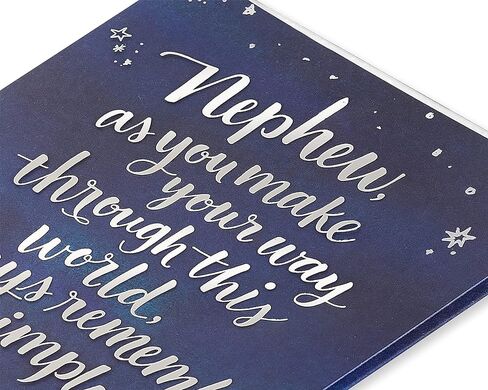 Nephew,
as you make
your way
through this
world,
ys remember
imple